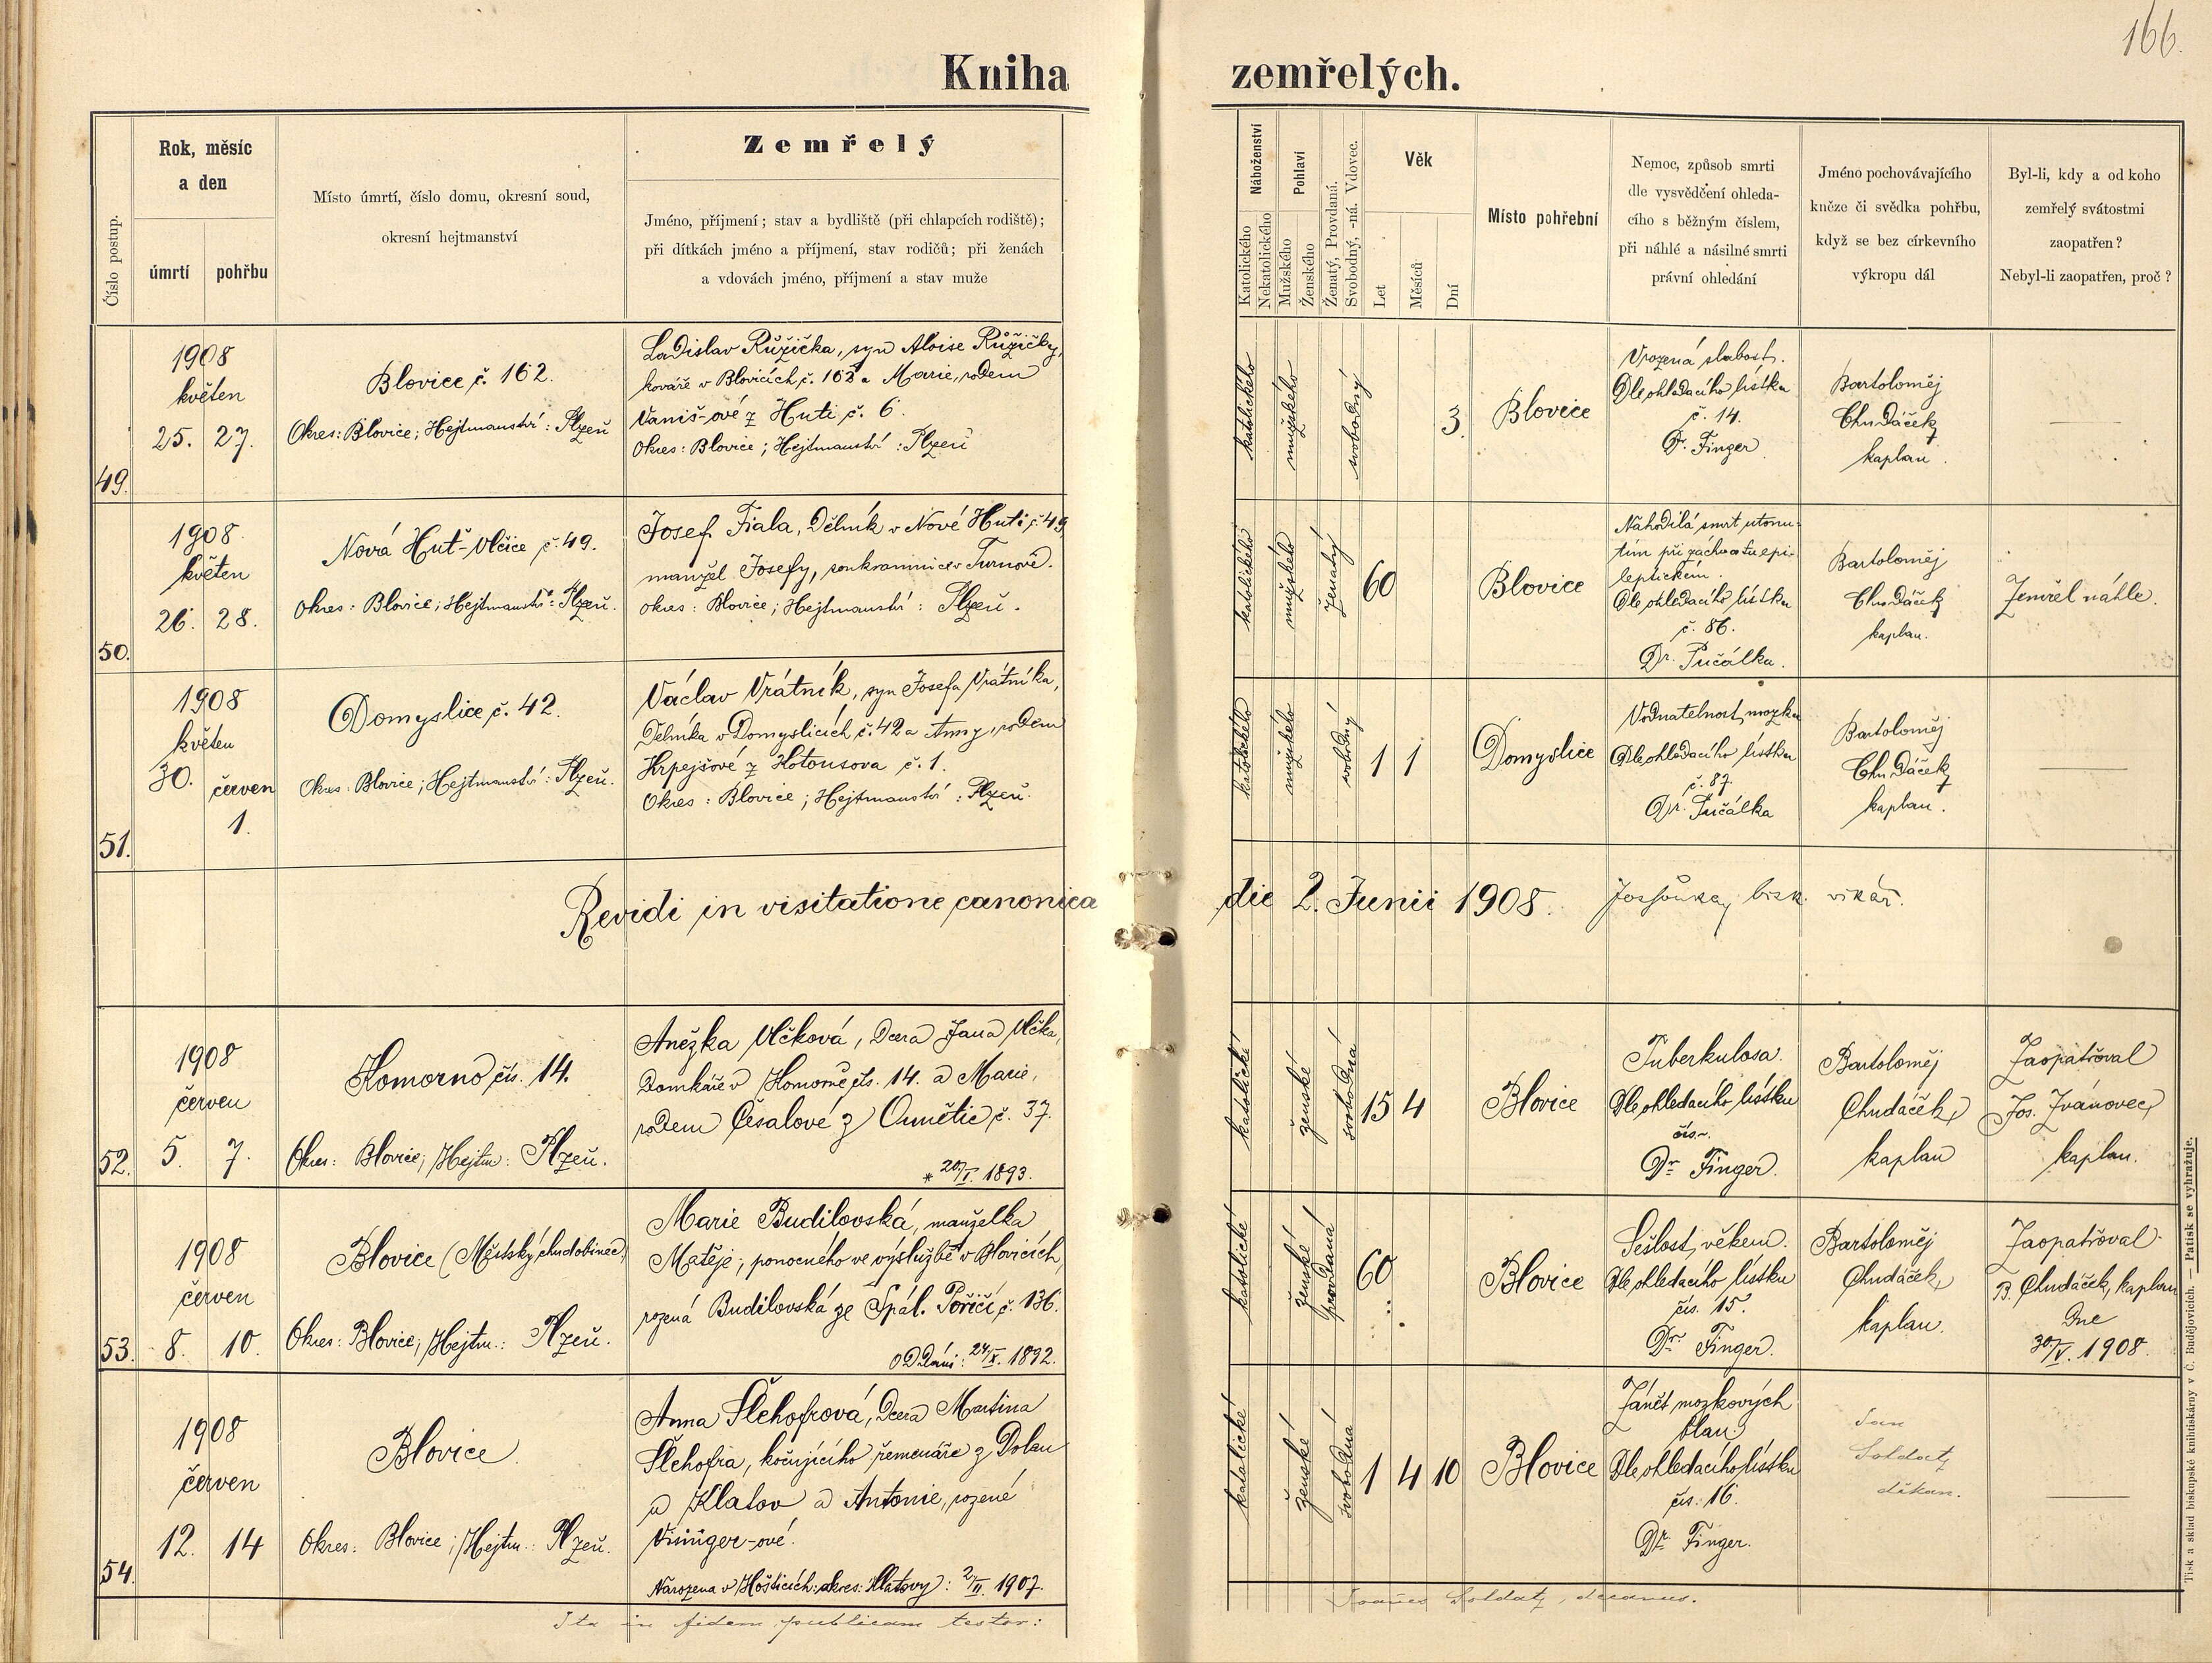 166.
Kniha zemřelých.
Číslo postup.
Rok, měsíc
a den
úmrtí
pohřbu
Místo úmrtí, číslo domu, okresní soud,
okresní hejtmanství
Zemřelý
Jméno, příjmení; stav a bydliště (při chlapcích rodiště);
při dítkách jméno a příjmení, stav rodičů; při ženách
a vdovách jméno, příjmení a stav muže
Náboženství
Katolického
Nekatolického
Pohlaví
Mužského
Ženského
Ženatý, Provdaná.
Svobodný, -ná. Vdovec.
Věk
Let
Měsíců
Dní
Místo pohřební
Nemoc, způsob smrti
dle vysvědčení ohleda-
cího s běžným číslem,
při náhlé a násilné smrti
právní ohledání
Jméno pochovávajícího
kněze či svědka pohřbu,
když se bez církevního
výkropu dál
Byl-li, kdy a od koho
zemřelý svátostmi
zaopatřen?
Nebyl-li zaopatřen, proč?
49.
1908
květen
25. 27.
Blovice č. 162.
Okres: Blovice; Hejtmanství: Plzeň
Ladislav Růžička, syn Aloise Růžičky,
kováře v Blovicích č. 162 a Marie, rodem
Vaniš-ové z Huti č. 6.
Okres: Blovice; Hejtmanství: Plzeň
katolického
mužského
svobodný
3.
Blovice
Vrozená slabost.
Dle ohledacího lístku
č. 14.
Dr. Finger
Bartoloměj
Chudáček
kaplan.
50.
1908.
květen
26. 28.
Nová Huť-Vlčice č. 49.
Okres: Blovice; Hejtmanství: Plzeň.
Josef Fiala, dělník v Nové Huti č. 49
manžel Josefy, soukromnice v Turnově.
okres: Blovice; Hejtmanství: Plzeň.
katolického
mužského
ženatý
60
Blovice
Náhodilá smrt utonu-
tím při záchvatu epi-
leptickém.
Dle ohledacího lístku
č. 86.
Dr. Pučálka.
Bartoloměj
Chudáček
kaplan.
Zemřel náhle.
51.
1908
květen
30. červen
1.
Domyslice č. 42.
Okres: Blovice; Hejtmanství: Plzeň.
Václav Vrátník, syn Josefa Vrátníka,
dělníka v Domyslicích č. 42 a Anny, rodem
Krpejšové z Chotousova č. 1.
Okres: Blovice; Hejtmanství: Plzeň.
katolického
mužského
svobodný
1 1
Domyslice
Vodnatelnost mozku
Dle ohledacího lístku
č. 87.
Dr. Pučálka
Bartoloměj
Chudáček
kaplan.
Revidi in visitatione canonica die 2. Junii 1908. bisk. vikář.
52.
1908
červen
5. 7.
Komorno čís. 14.
Okres: Blovice; Hejtm.: Plzeň.
Anežka Vlčková, dcera Jana Vlčka,
domkáře v Komorně čís. 14. a Marie,
rodem Česalové z Ounětic č. 37.
* 20/I. 1893.
katolické
ženské
svobodná
15 4
Blovice
Tuberkulosa.
Dle ohledacího lístku
čís. ~.
Dr. Finger.
Bartoloměj
Chudáček,
kaplan
Zaopatřoval
Jos. Ivanovec,
kaplan.
53.
1908
červen
8. 10.
Blovice (Městský chudobinec)
Okres: Blovice; Hejtm.: Plzeň.
Marie Budilovská, manželka
Matěje, ponocného ve výslužbě v Blovicích,
rozená Budilovská ze Spál. Poříčí č. 136.
oddáni: 24/X. 1892.
katolické
ženské
provdaná
60
Blovice
Sešlost věkem.
Dle ohledacího lístku
čís. 15.
Dr. Finger.
Bartoloměj
Chudáček,
kaplan.
Zaopatřoval
B. Chudáček, kaplan
dne
30/V. 1908.
54.
1908
červen
12. 14
Blovice
Okres: Blovice; Hejtm.: Plzeň.
Anna Šlehofrová, dcera Martina
Šlehofra, kočujícího řemenáře z Dolan
u Klatov a Antonie, rozené
Visinger-ové.
Narozena v Hošticích: okres: Klatovy: 2/II. 1907.
katolické
ženské
svobodná
1 4 10
Blovice
Zánět mozkových
blan.
Dle ohledacího lístku
čís. 16.
Dr. Finger.
Jan
Soldat,
děkan.
Ita in fidem publicam testor: Joannes Soldat, decanus.
Tisk a sklad biskupské knihtiskárny v Č. Budějovicích. — Patisk se vyhražuje.